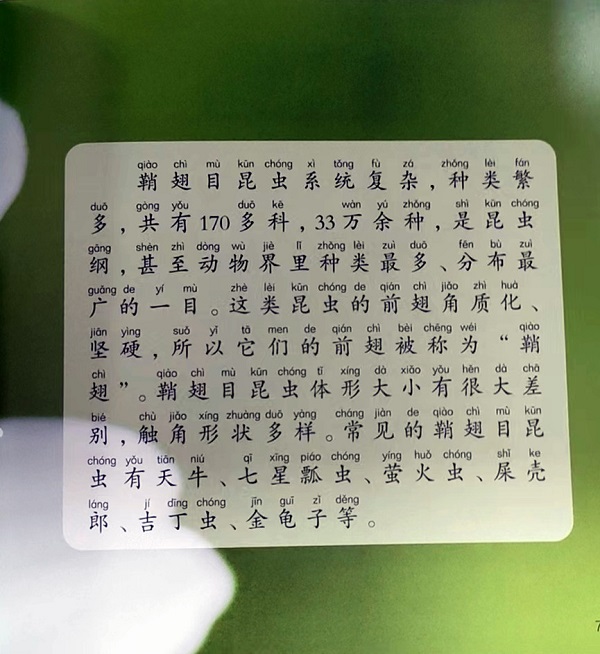 qiào chì mù kūn chóng xì tǒng fù zá zhǒng lèi fán
鞘翅目昆虫系统复杂，种类繁
duō gòng yǒu duō kē wàn yú zhǒng shì kūn chóng
多，共有170多科，33万余种，是昆虫
gāng shèn zhì dòng wù jiè lǐ zhǒng lèi zuì duō fēn bù zuì
纲，甚至动物界里种类最多、分布最
guǎng de yí mù zhè lèi kūn chóng de qián chì jiǎo zhì huà
广的一目。这类昆虫的前翅角质化、
jiān yìng suǒ yǐ tā men de qián chì bèi chēng wéi qiào
坚硬，所以它们的前翅被称为“鞘
chì qiào chì mù kūn chóng tǐ xíng dà xiǎo yǒu hěn dà chā
翅”。鞘翅目昆虫体形大小有很大差
bié chù jiǎo xíng zhuàng duō yàng cháng jiàn de qiào chì mù kūn
别，触角形状多样。常见的鞘翅目昆
chóng yǒu tiān niú qī xīng piáo chóng yíng huǒ chóng shǐ ke
虫有天牛、七星瓢虫、萤火虫、屎壳
láng jí dīng chóng jīn guī zǐ děng
郎、吉丁虫、金龟子等。
7